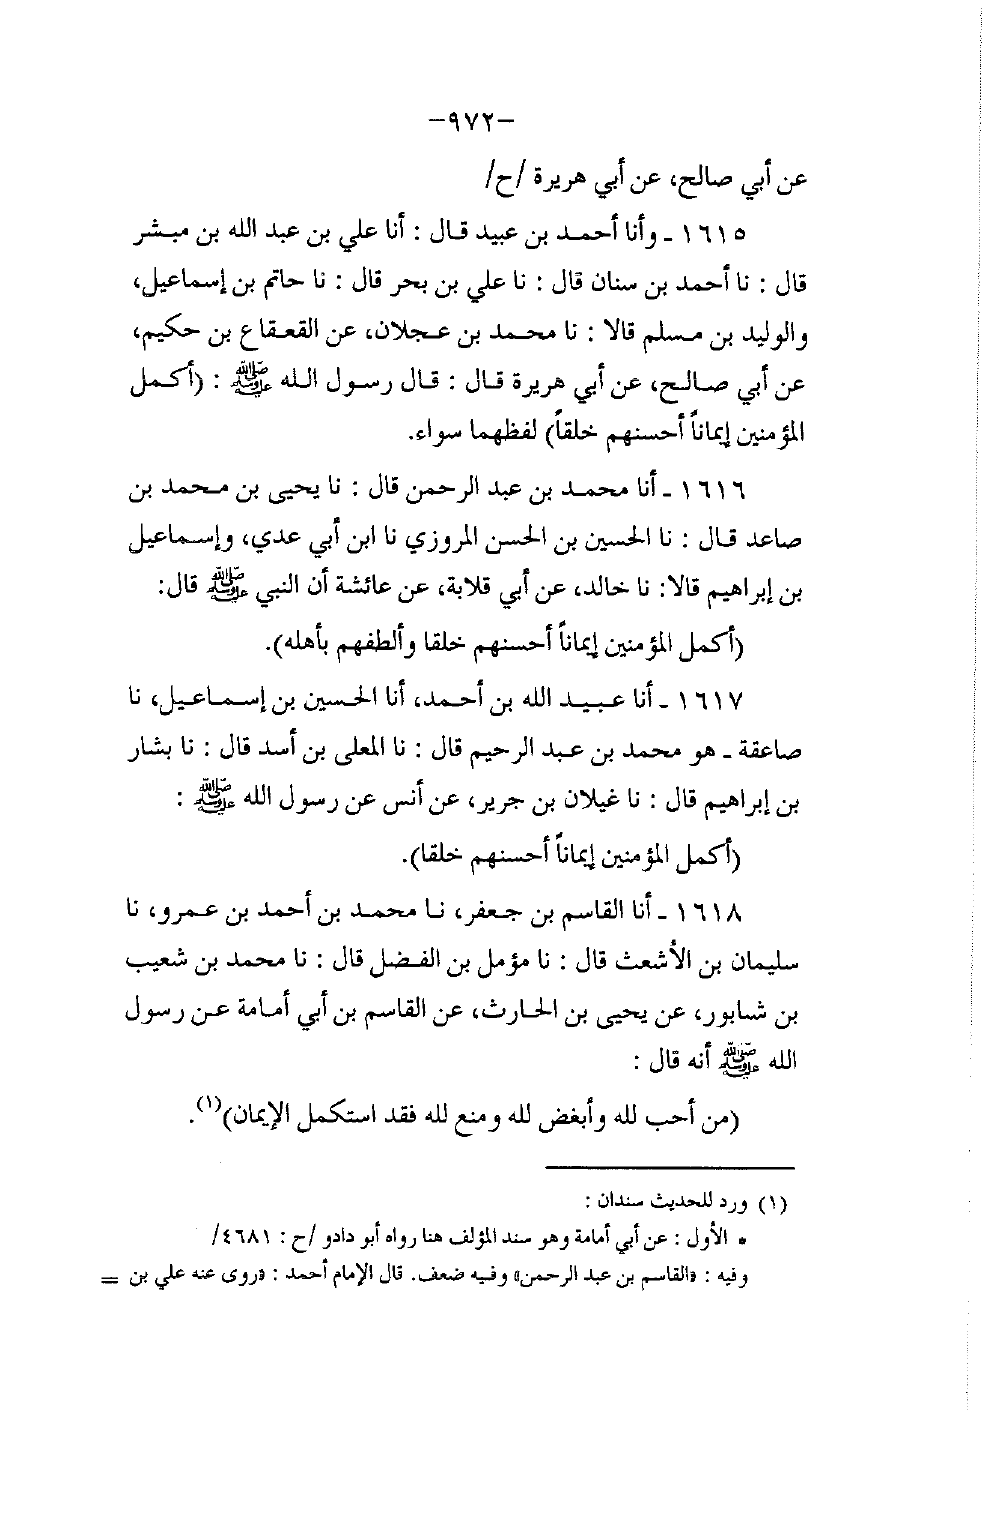 -٩٧٢-
عن أبي صالح، عن أبي هريرة /ح/
١٦١٥ ـ وأنا أحمد بن عبيد قال : أنا علي بن عبد الله بن مبشر
قال : نا أحمد بن سنان قال : نا علي بن بحر قال : نا حاتم بن إسماعيل،
والوليد بن مسلم قالا : نا محمد بن عجلان، عن القعقاع بن حكيم،
عن أبي صالح، عن أبي هريرة قال : قال رسول الله ﷺ : (أكمل
المؤمنين إيماناً أحسنهم خلقاً) لفظهما سواء.
١٦١٦ ـ أنا محمد بن عبد الرحمن قال : نا يحيى بن محمد بن
صاعد قال : نا الحسين بن الحسن المروزي نا ابن أبي عدي، وإسماعيل
بن إبراهيم قالا: نا خالد، عن أبي قلابة، عن عائشة أن النبي ﷺ قال:
(أكمل المؤمنين إيماناً أحسنهم خلقا وألطفهم بأهله).
١٦١٧ ـ أنا عبيد الله بن أحمد، أنا الحسين بن إسماعيل، نا
صاعقة ـ هو محمد بن عبد الرحيم قال : نا المعلى بن أسد قال : نا بشار
بن إبراهيم قال : نا غيلان بن جرير، عن أنس عن رسول الله ﷺ :
(أكمل المؤمنين إيماناً أحسنهم خلقا).
١٦١٨ ـ أنا القاسم بن جعفر، نا محمد بن أحمد بن عمرو، نا
سليمان بن الأشعث قال : نا مؤمل بن الفضل قال : نا محمد بن شعيب
بن شابور، عن يحيى بن الحارث، عن القاسم بن أبي أمامة عن رسول
الله ﷺ أنه قال :
(من أحب لله وأبغض لله ومنع لله فقد استكمل الإيمان)(١).
(١) ورد للحديث سندان :
• الأول : عن أبي أمامة وهو سند المؤلف هنا رواه أبو دادو /ح : ٤٦٨١/
وفيه : «القاسم بن عبد الرحمن» وفيه ضعف. قال الإمام أحمد : «روى عنه علي بن =